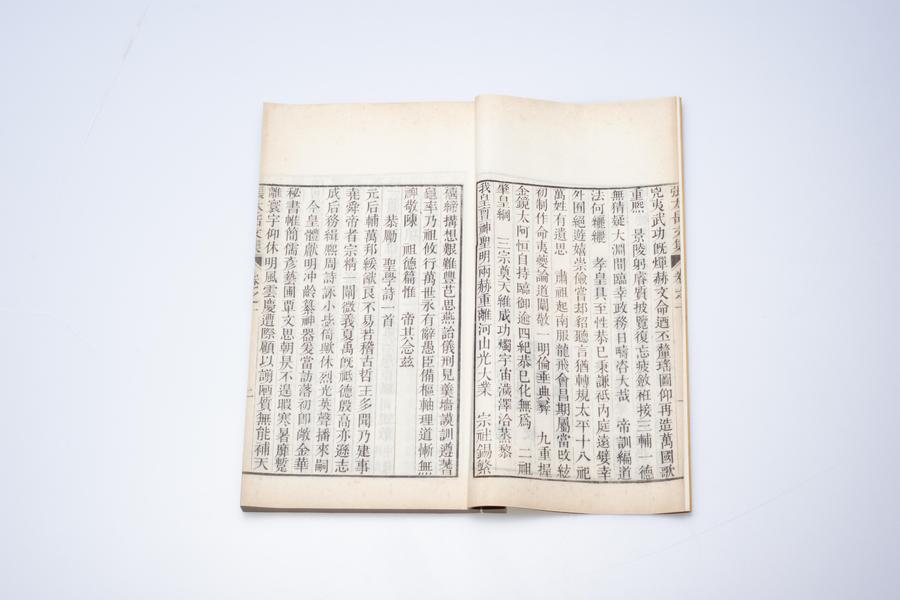 兇夷武功既煇赫文命迺丕釐瑤圖仰再造萬國歌
重熙 景陵躬睿質披覽復忘疲斂袵接三輔一德
無猜疑大淵間臨幸政務日疇咨大哉 帝訓編道
法何纚纚 孝皇具至性恭己秉謙祗內庭遠嬖幸
外囿絕遊嬉崇儉嘗却貂聽言猶轉規太平十八祀
萬姓有遺思 肅祖起南服龍飛會昌期屬當攺紘
初制作命夷夔論道闢敬一明倫垂典彝 九重握
金鏡太阿恒自持臨御逾四紀恭己化無為 二祖
肇皇綱 三宗奠天維威功燭宇宙濊澤洽蒸黎
我皇育神聖明兩赫重離河山光大業 宗祖錫繁
禧締搆想艱難豐芑思燕詒儀刑見羹墻謨訓遵蓍
龜率乃祖攸行萬世永有辭愚臣備樞軸理道慚無
裨敬陳 祖德篇惟 帝其念茲
恭勵 聖學詩一首
元后輔萬邦綏猷良不易若稽古哲王多聞乃建事
堯舜帝者宗精一闡微義夏禹旣祗德殷高亦遜志
成后務緝熙周詩詠小毖倚歟休烈光英聲播來嗣
今皇體獻明冲齡纂神器爰當訪落初卽敞金華
秘書帷簡儒彥藝圃覃文思朝昃不遑暇寒暑靡蹔
離寰宇仰休明風雲慶遭際顧以謭陋質無能補天